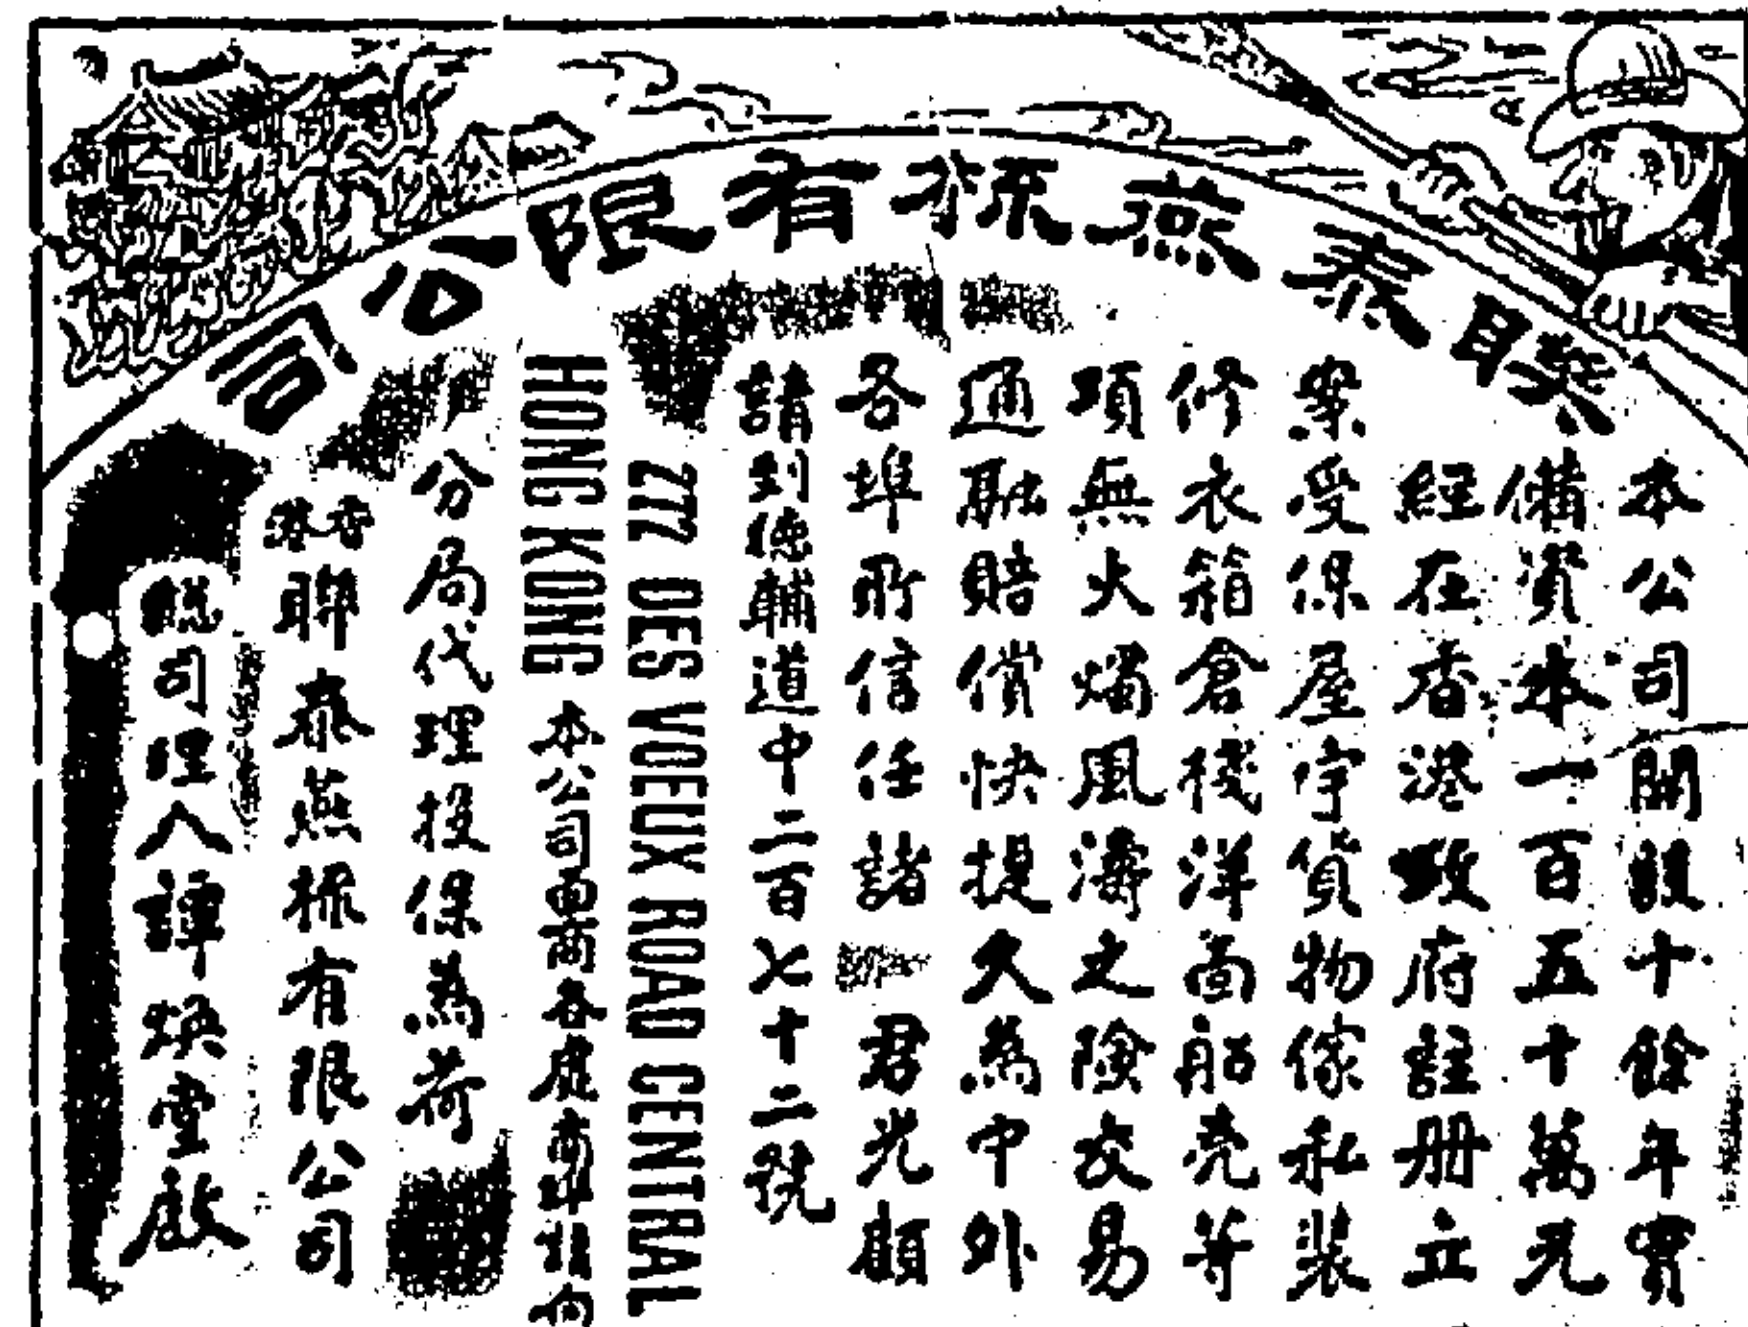 聯泰燕梳有限公司
本公司開設十餘年實
備資本一百五十萬元
經在香港政府註册立
案受保屋宇貨物傢私裝
修衣箱倉棧洋面船壳等
項無火燭風濤之險交易
通融賠償快捷久為中外
各埠所信任諸 君光顧
請到德輔道中二百七十二號
272 DES VOEUX ROAD CENTRAL
HONG KONG
本公司各處商埠
分局代理投保為荷
香港聯泰燕梳有限公司
總司理人譚煥堂啟